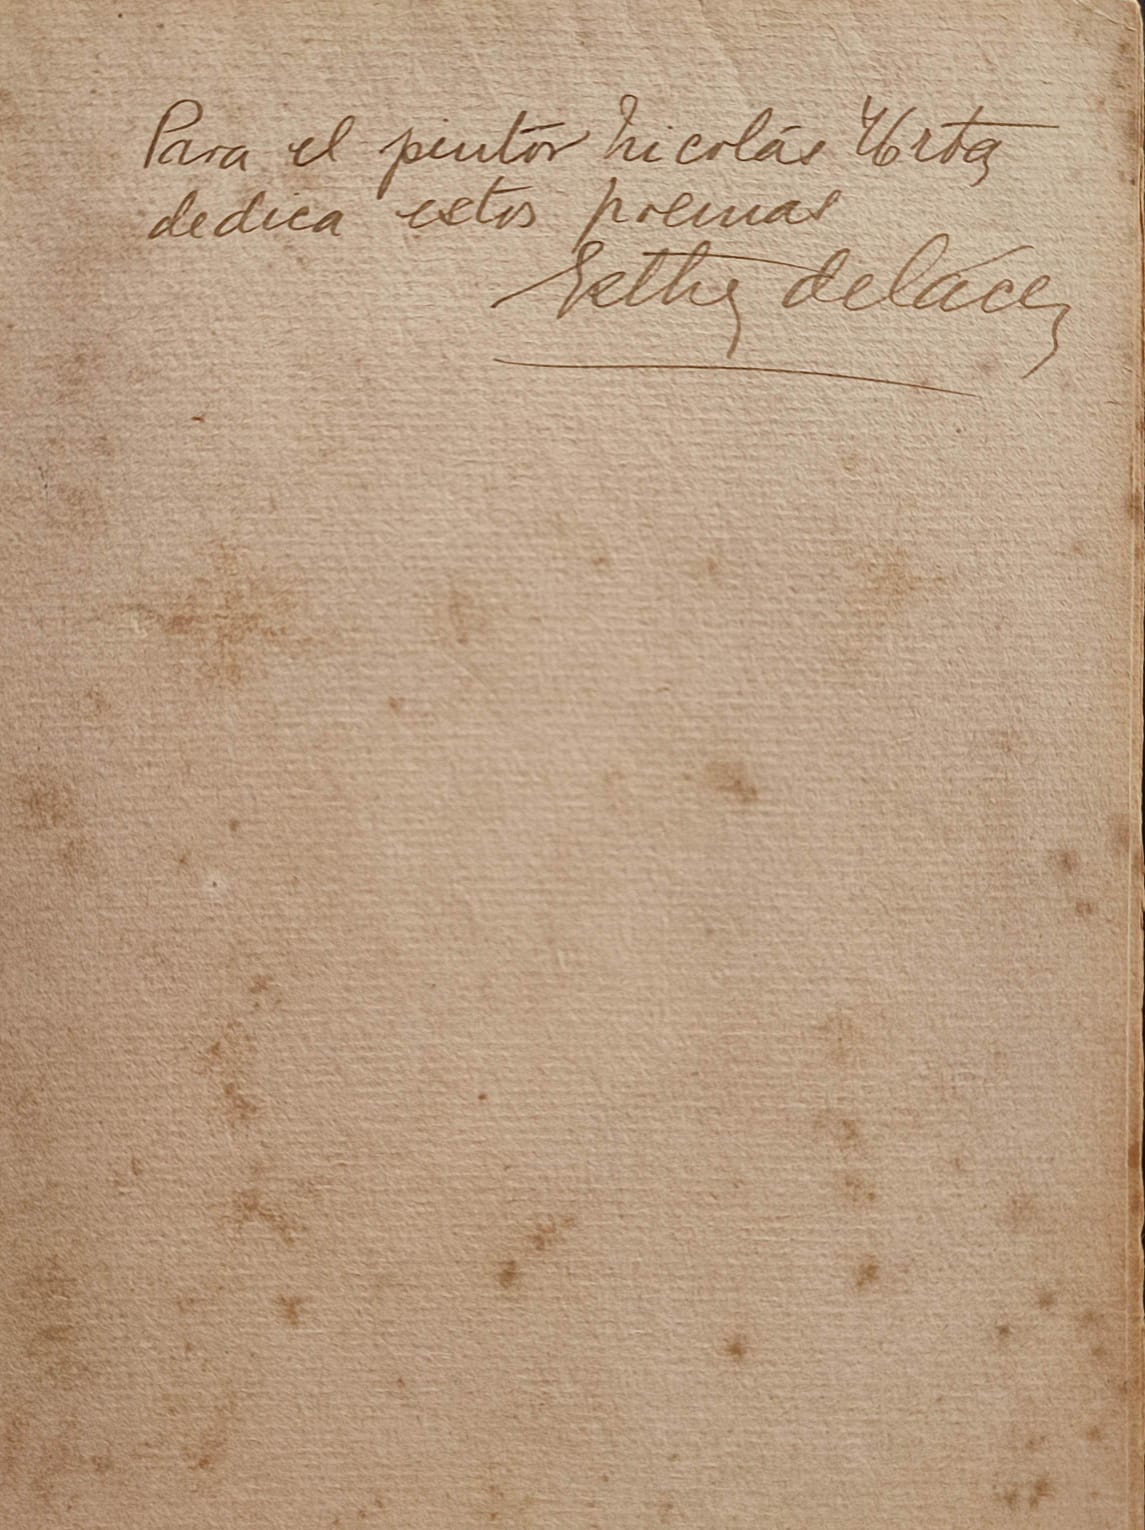 Para el pintor Nicolás Urta
dedica estos poemas
Esther de Cáceres